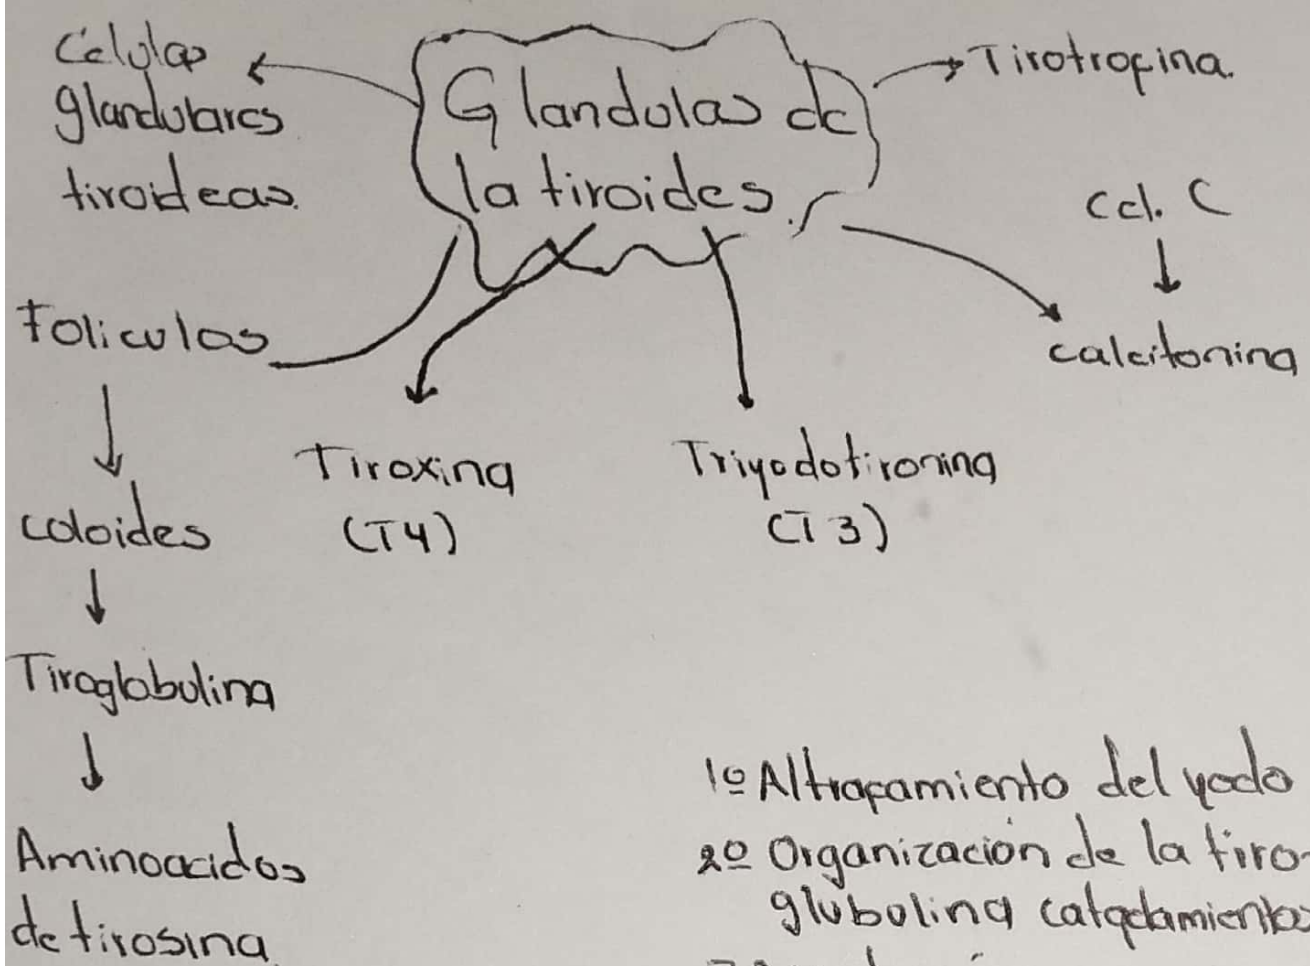 Glandulas de
la tiroides.
Celulas
glandulares
tiroideas.
Tirotropina.
Cel. C
calcitonina
Foliculos
coloides
Tiroglobulina
Aminoacidos
de tirosina
Tiroxina
(T4)
Triyodotironina
(T3)
1º Altrapamiento del yodo
2º Organización de la tiro-
globulina